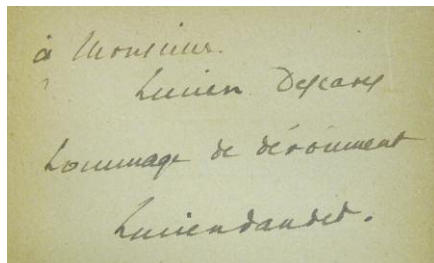 à Monsieur.
Lucien Descaves
hommage de dévouement
Lucien daudet.